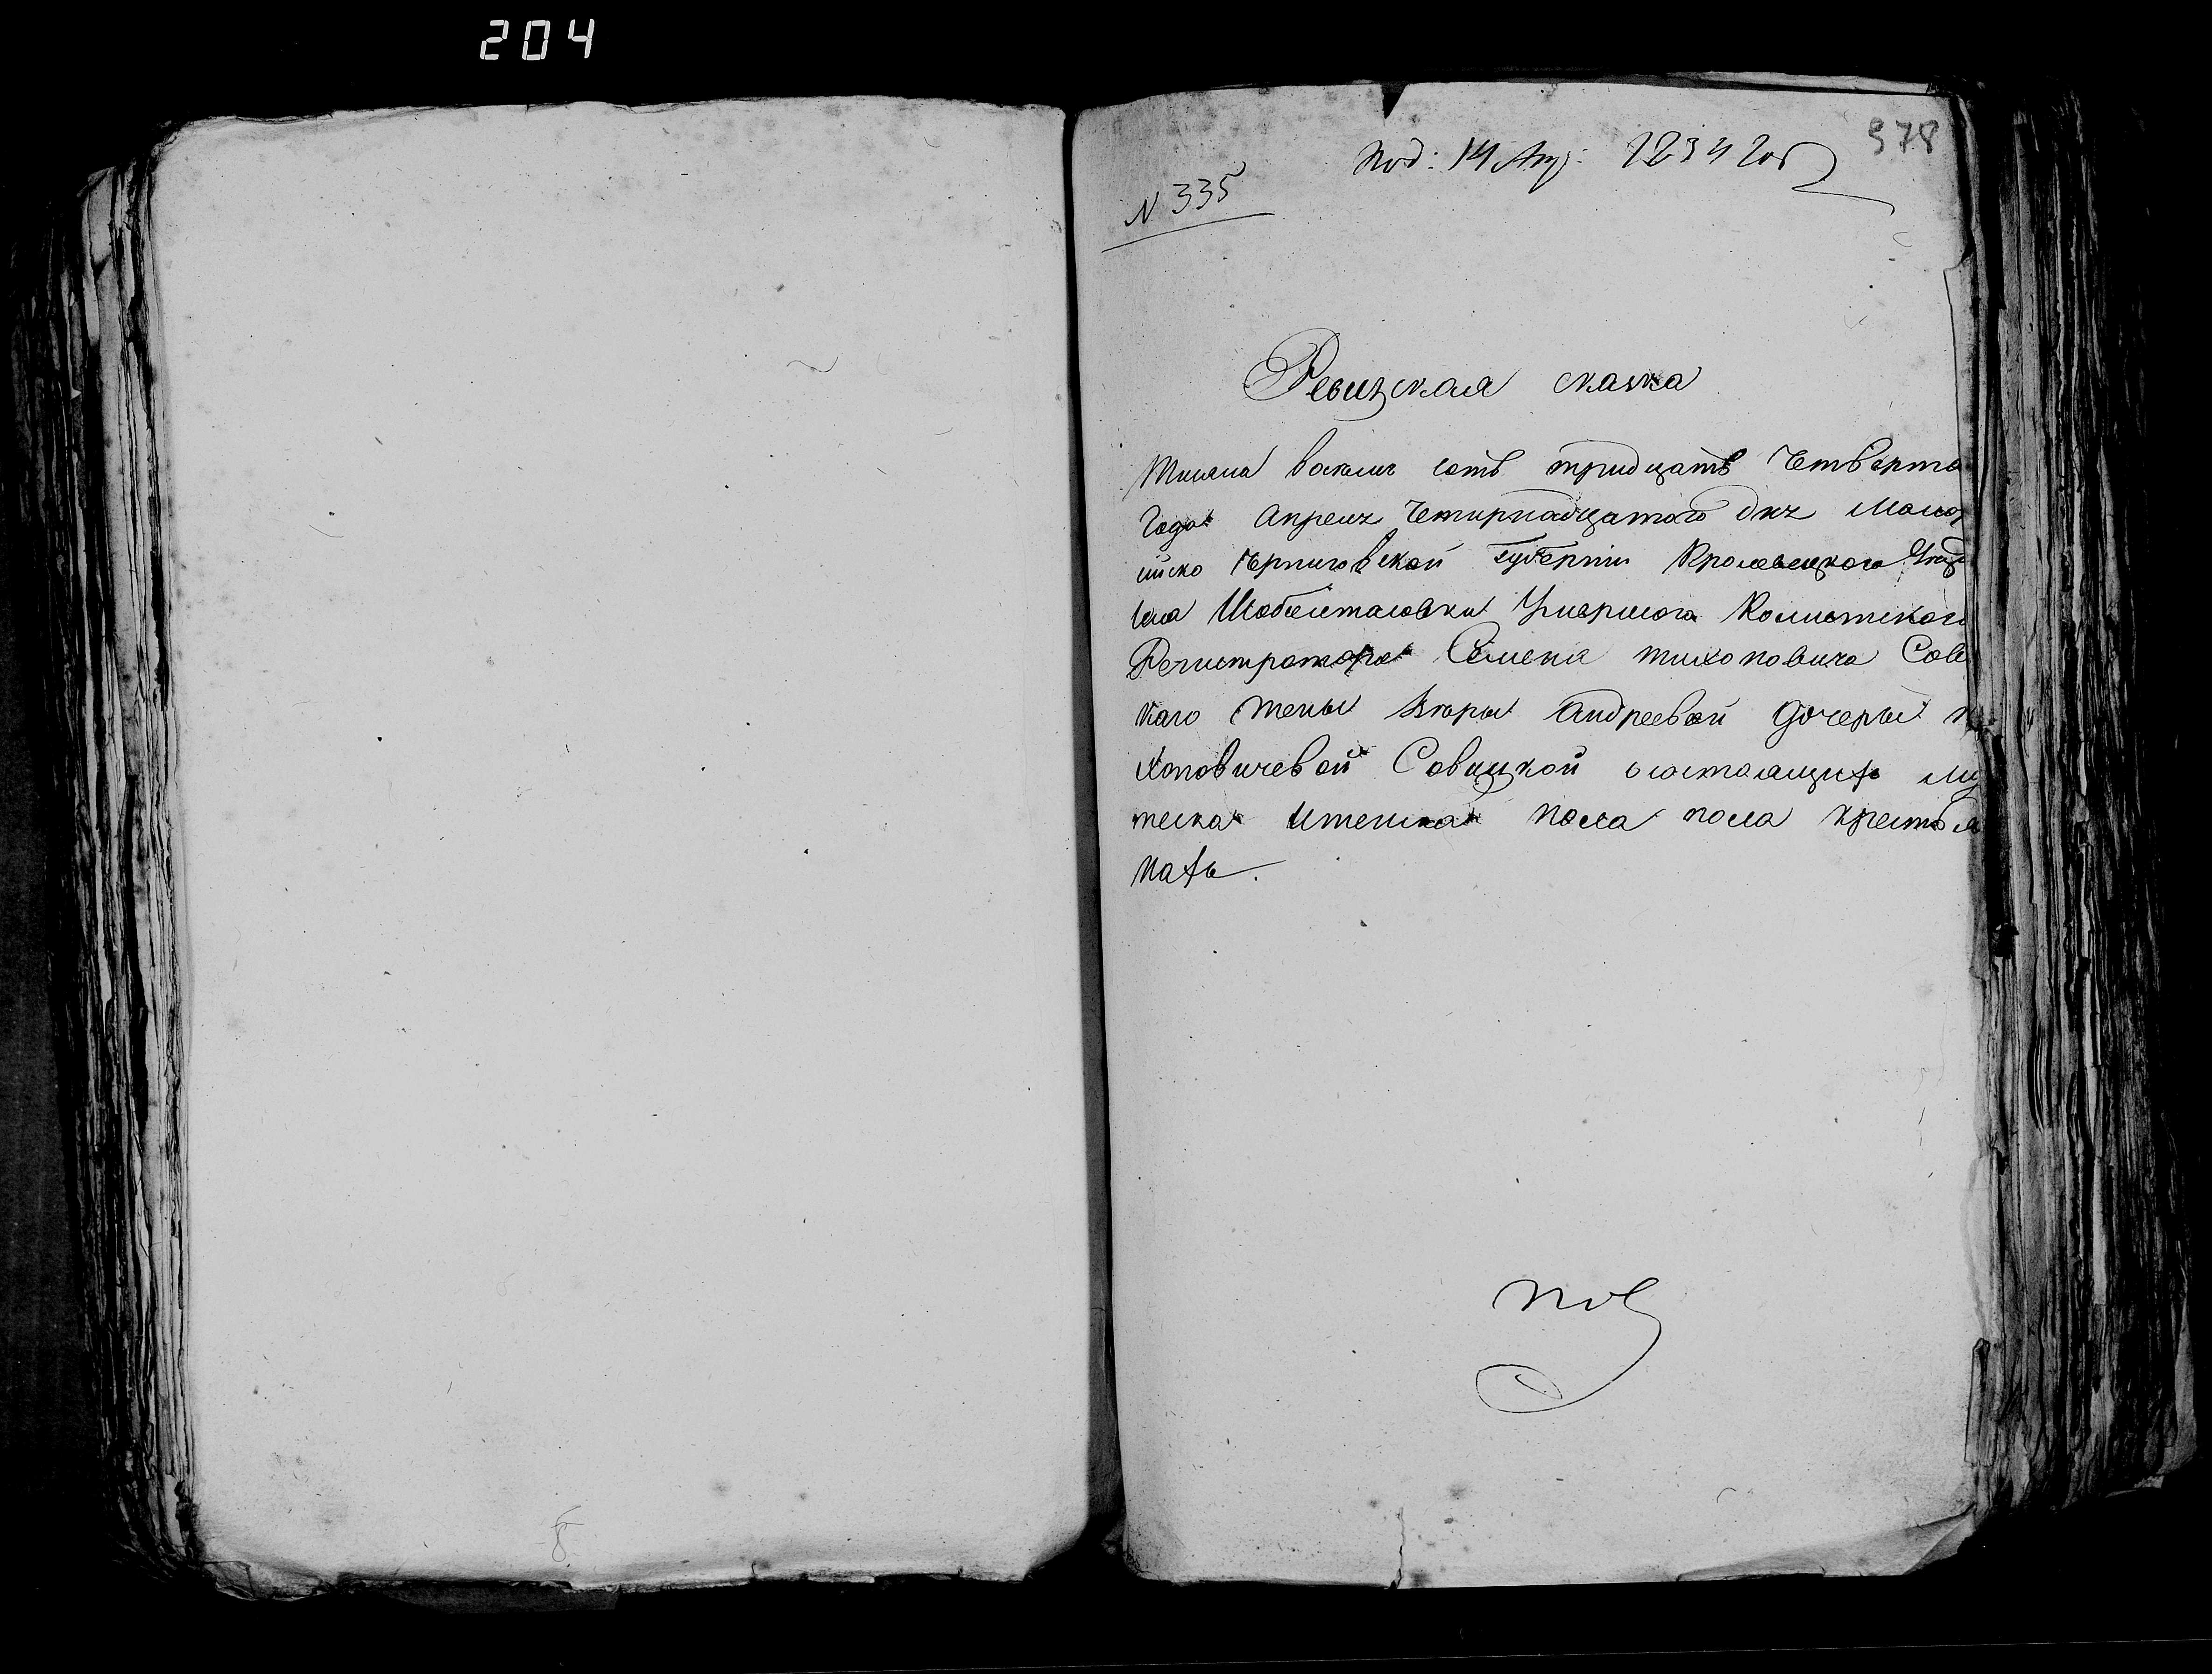 204
978
Под: 14 Апр: 1834 года
N 335
Ревизская сказка
Тисяча восемь сотъ тридцать Четверта
Года апреля Четирнадцатого дня Малор
ийско Черниговской Губерніи Кролевецкого Уезд
села Умершога Колистского
Регистратора Семена тихоновича Сав
каго жены Андреевой дочеры
Хоновичевой Савицкой о состоящихъ му
жеска и женска пола пола крестья
нахъ.